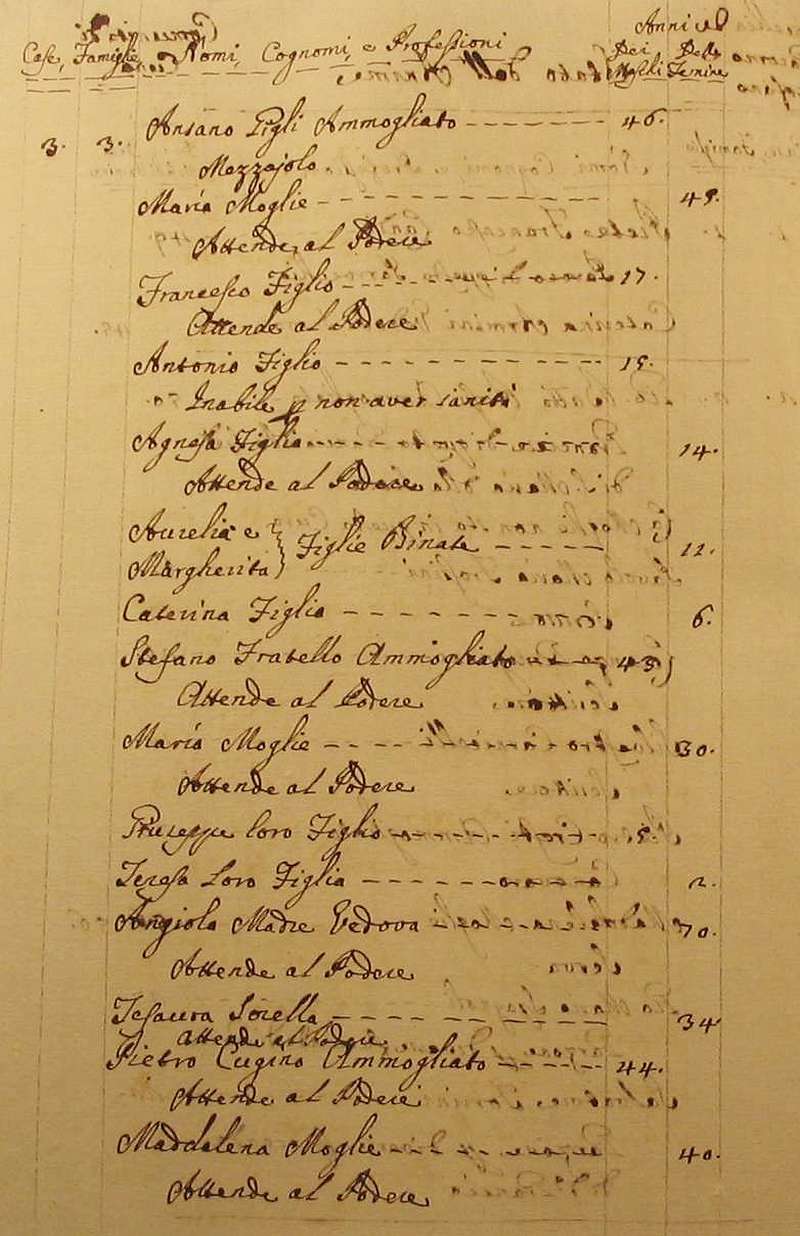 Case, Famiglie, Nomi, Cognomi, e Professioni
Anni
Dei Delle
Maschi Femine
3. 3. Ansano Pigli Ammogliato 46.
Mezzajolo.
Maria Moglie
Attende al Podere
Francesco Figlio 17.
Attende al Podere
Antonio Figlio 15.
Inabile p non aver sanità
Agnesa Figlia 14.
Attende al Podere
Aurelia e
Margherita } Figlie Binate 11.
Caterina Figlia 6.
Stefano Fratello Ammogliato 43.
Attende al Podere
Maria Moglie 30.
Attende al Podere
Giuseppe loro Figlio 5.
Teresa loro Figlia 2.
Angiola Madre Vedova 70.
Attende al Podere
Tesaura Sorella 34
Attende al Podere
Pietro Cugino Ammogliato 44.
Attende al Podere
Maddalena Moglie 40.
Attende al Podere